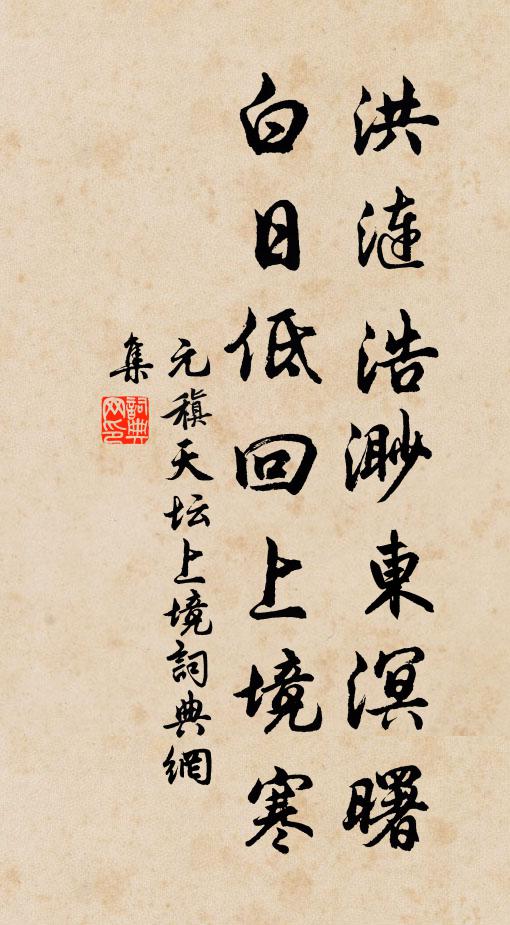 洪漣浩渺東溟曙
白日低回上境寒
元稹天坛上境詞典網
集
詞典网印